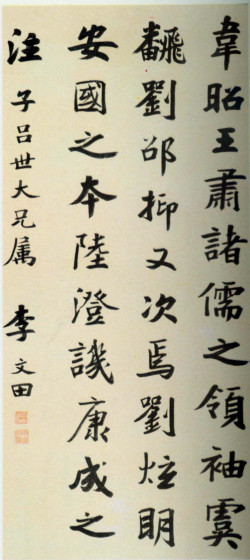 韋昭王肅諸儒之領袖虞
翻劉邵抑又次焉劉炫明
安國之本陸澄譏康成之
注
子呂世大兄属
李文田